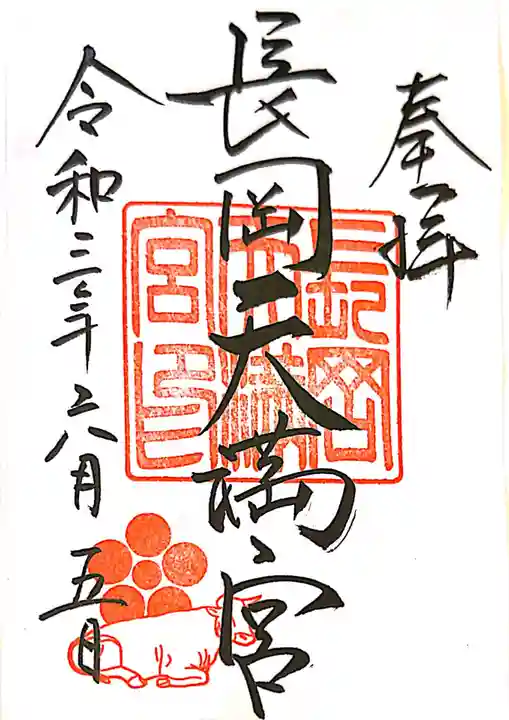 奉拝
長岡天満宮
長岡天満宮印
令和三年六月五日